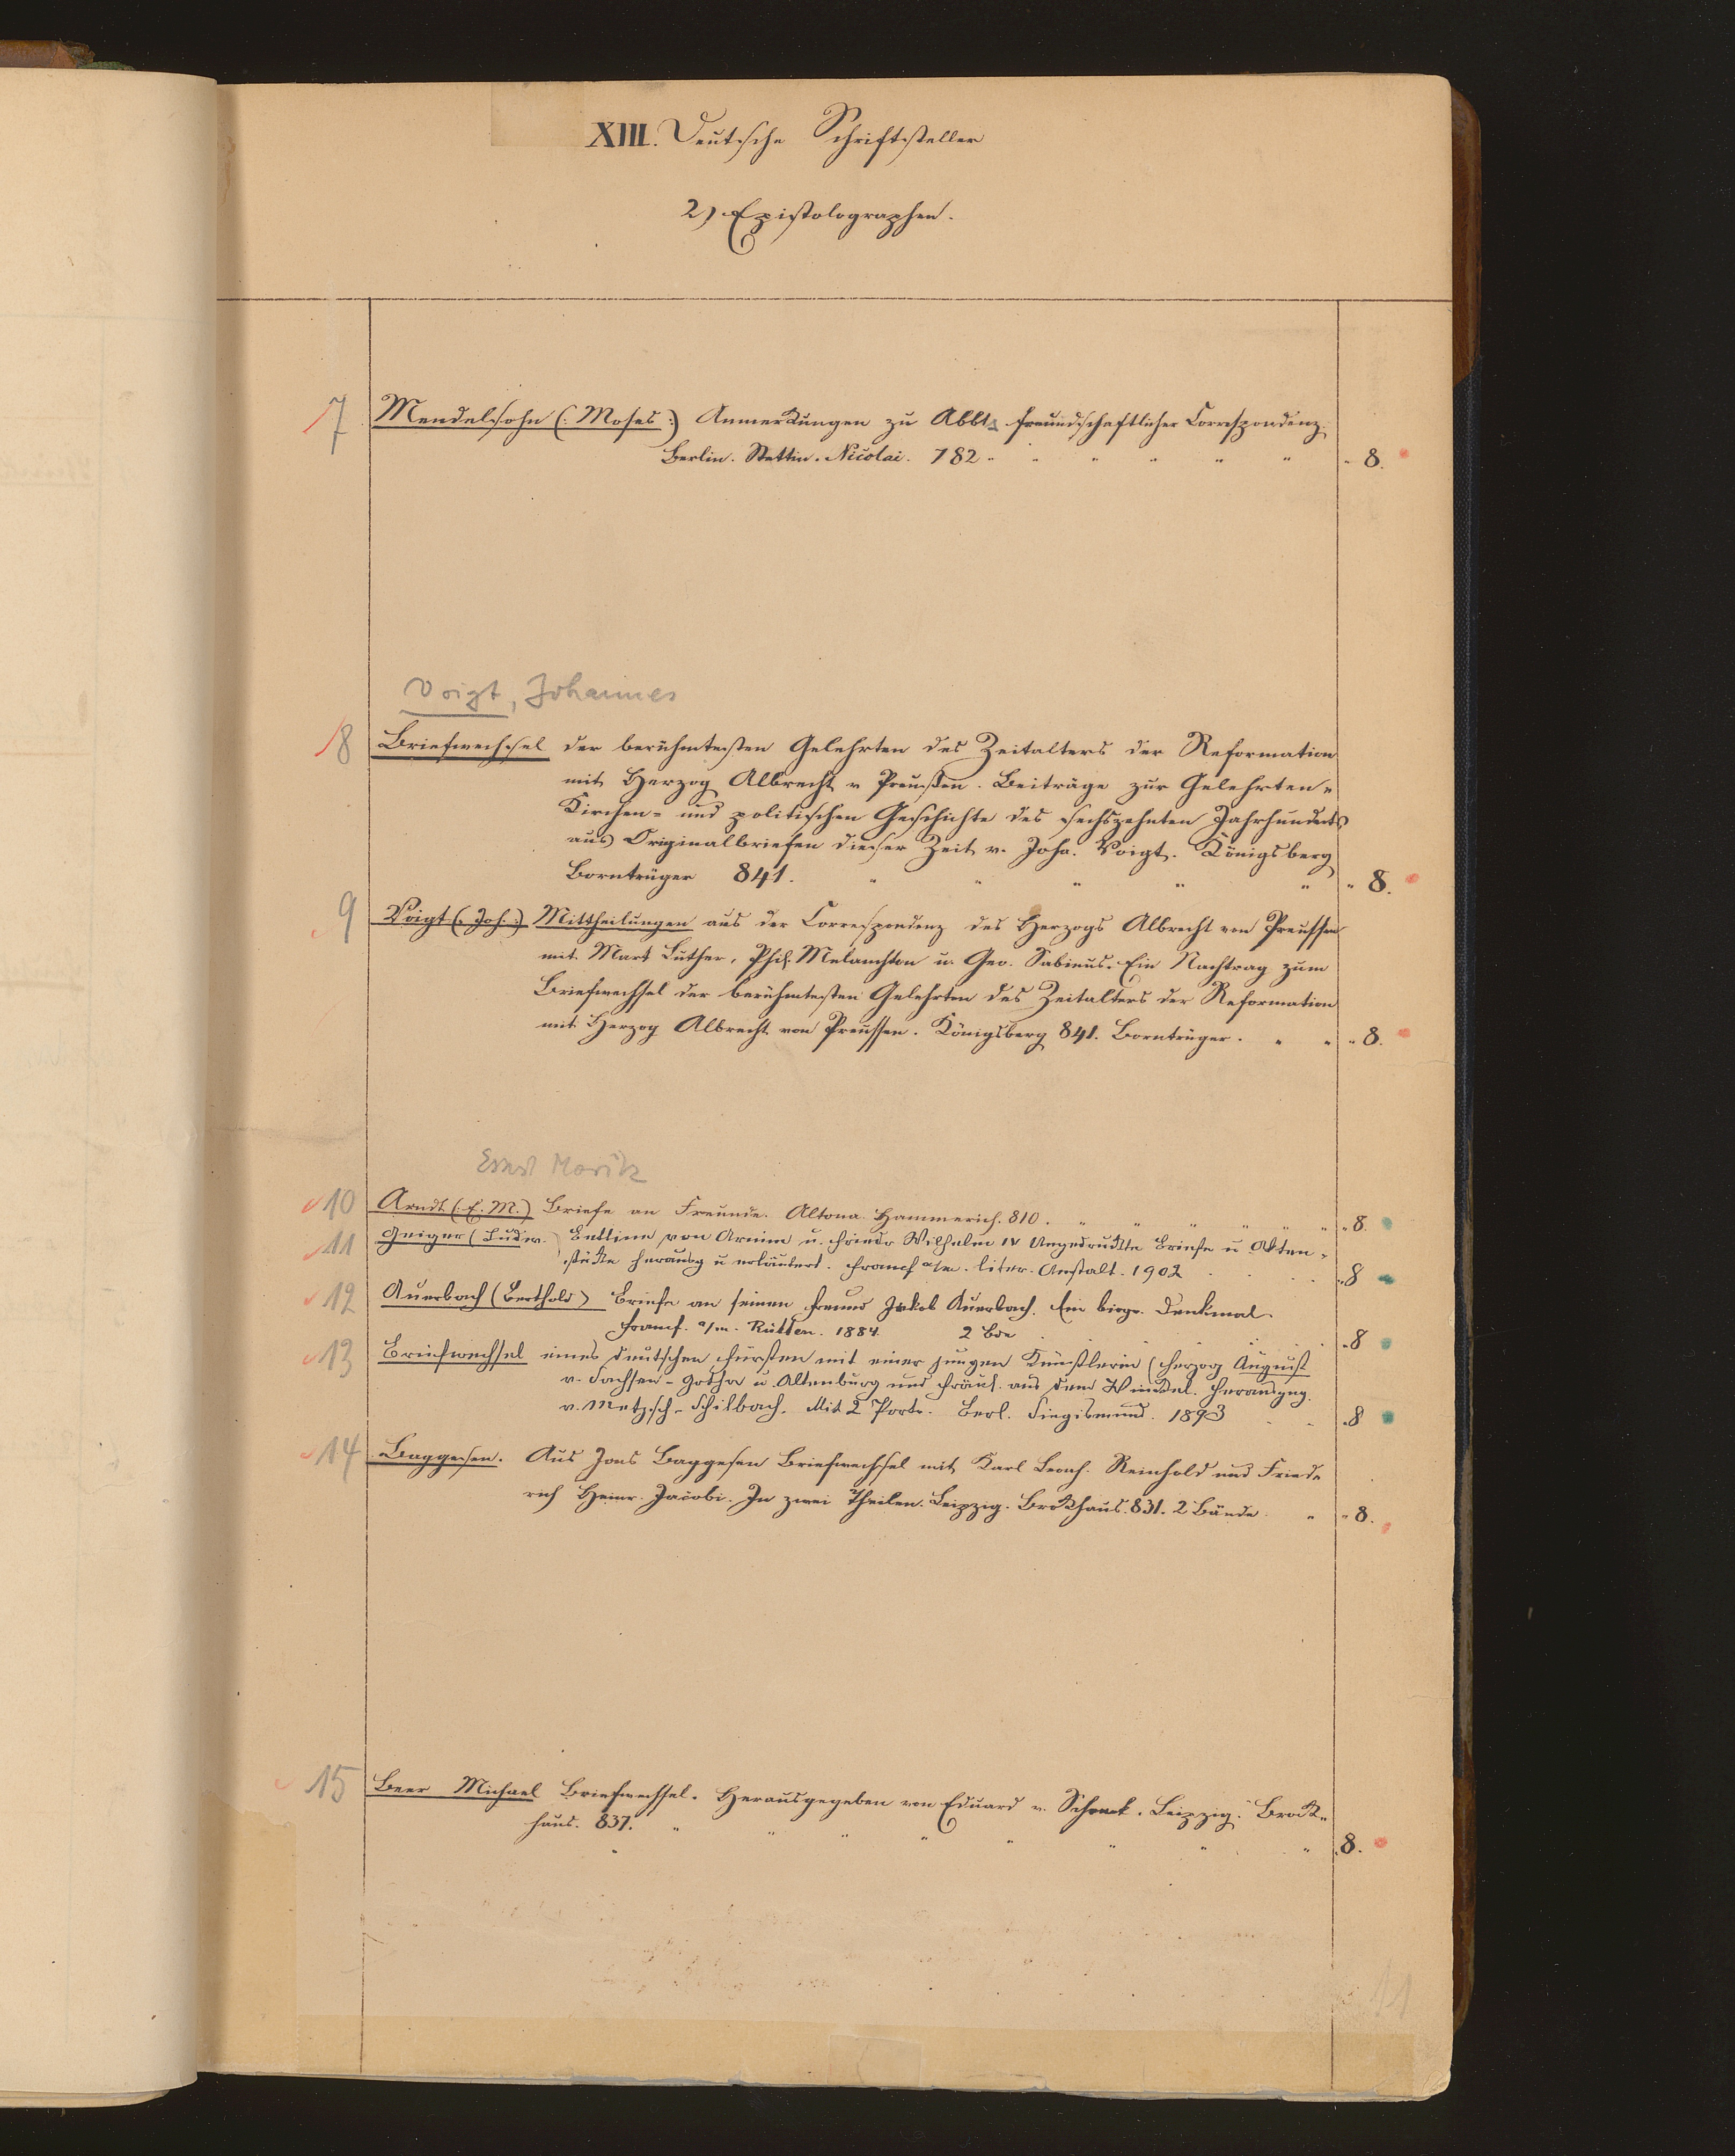 XIII. Deutsche Schriftsteller
2) Epistolographen.
7 Mendelsohn (: Moses :) Anmerkungen zu Abbts freundschaftlicher Correspondenz.
Berlin. Stettin. Nicolai. 782 " " " " " " " 8.
Voigt, Johannes
8 Briefwechsel der berühmtesten Gelehrten des Zeitalters der Reformation
mit Herzog Albrecht v. Preußen. Beiträge zur Gelehrten-
Kirchen- und politischen Geschichte des sechszehnten Jahrhunderts
aus Originalbriefen dieser Zeit v. Joha. Voigt. Königsberg
Bornträger 841. " " " " " " 8.
9 Voigt (: Joh. :) Mittheilungen aus der Correspondenz des Herzogs Albrecht von Preussen
mit Mart Luther, Phil. Melanchton u. Geo. Sabinus. Ein Nachtrag zum
Briefwechsel der berühmtesten Gelehrten des Zeitalters der Reformation
mit Herzog Albrecht von Preussen. Königsberg 841. Bornträger. " " " 8.
Ernst Moritz
10 Arndt (: E. M.) Briefe an Freunde. Altona. Hammerich. 810. " " " " " " " 8.
11 Geiger (Ludw. Bettine von Arnim u. Friedr Wilhelm IV Ungedruckte Briefe u Akten-
stücke herausg u erläutert. Francf a/m. liter. Anstalt. 1902 " 8
12 Auerbach (Berthold) Briefe an seinen Freund Jakob Auerbach. Ein biogr. Denkmal.
Francf. a/m. Rütten. 1884. 2 Bde " 8
13 Briefwechsel eines deutschen Fürsten mit einer jungen Künstlerin (Herzog August
v. Sachsen-Gotha u. Altenburg und Fräul. aus dem Winckel. Herausgeg.
v. Metzsch-Schilbach. Mit 2 Portr. Berl. Siegismund. 1893 " 8
14 Baggesen. Aus Jens Baggesen Briefwechsel mit Karl Leonh. Reinhold und Fried-
rich Heinr. Jacobi. In zwei Theilen. Leipzig. Brockhaus. 831. 2 Bände. " " 8.
15 Beer Michael Briefwechsel. Herausgegeben von Eduard v. Schenk. Leipzig. Brock-
haus. 837. " " " " " " " " 8.
11